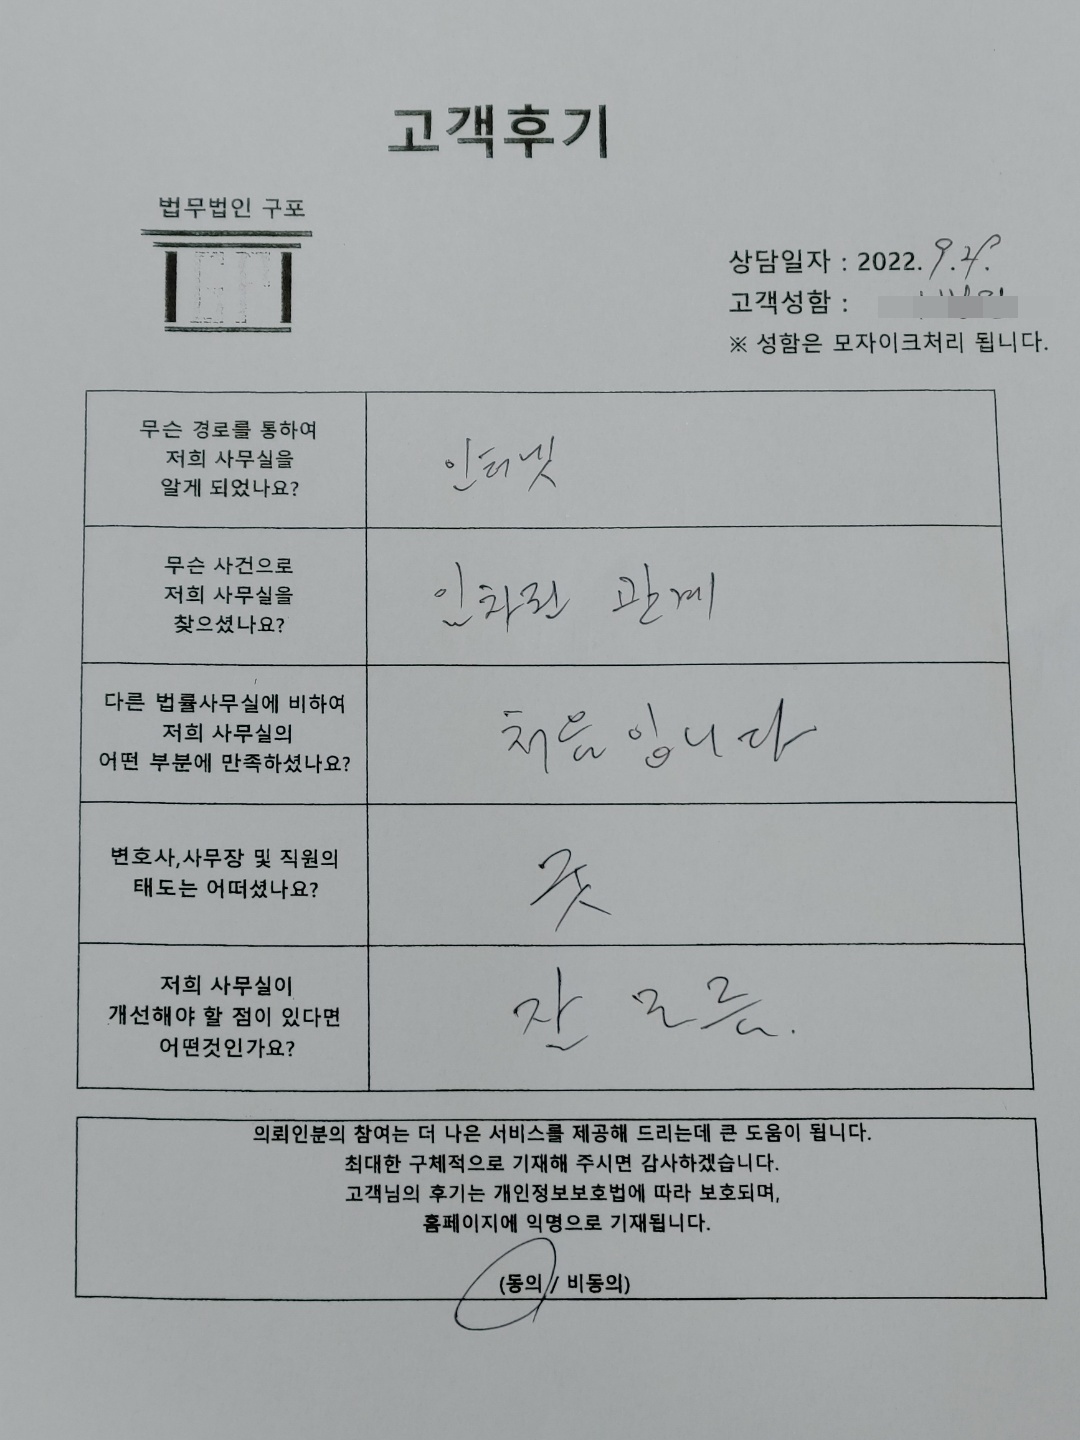 고객후기
법무법인 구포
상담일자 : 2022. 9.
고객성함 :
※ 성함은 모자이크처리 됩니다.
무슨 경로를 통하여
저희 사무실을
알게 되었나요?
인터넷
무슨 사건으로
저희 사무실을
찾으셨나요?
임차권 관계
다른 법률사무실에 비하여
저희 사무실의
어떤 부분에 만족하셨나요?
처음입니다
변호사,사무장 및 직원의
태도는 어떠셨나요?
굿
저희 사무실이
개선해야 할 점이 있다면
어떤것인가요?
잘 모름.
의뢰인분의 참여는 더 나은 서비스를 제공해 드리는데 큰 도움이 됩니다.
최대한 구체적으로 기재해 주시면 감사하겠습니다.
고객님의 후기는 개인정보보호법에 따라 보호되며,
홈페이지에 익명으로 기재됩니다.
(동의 / 비동의)